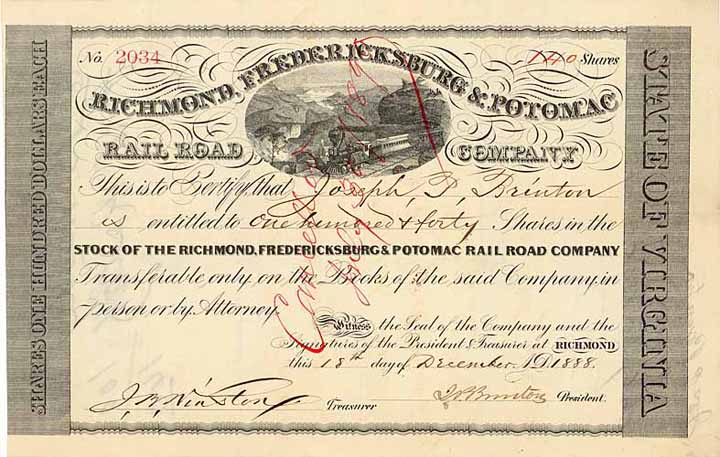 No. 2034
140 Shares
RICHMOND, FREDERICKSBURG & POTOMAC
RAIL ROAD COMPANY
This is to Certify, that Joseph P. Brinton
is entitled to One hundred & forty Shares in the
STOCK OF THE RICHMOND, FREDERICKSBURG & POTOMAC RAIL ROAD COMPANY
Transferable only on the Books of the said Company, in
person or by Attorney.
Witness the Seal of the Company and the
Signatures of the President & Treasurer at RICHMOND
this 18th day of December AD. 1888.
J. B. Winston Treasurer
President.
SHARES ONE HUNDRED DOLLARS EACH
STATE OF VIRGINIA
Cancelled